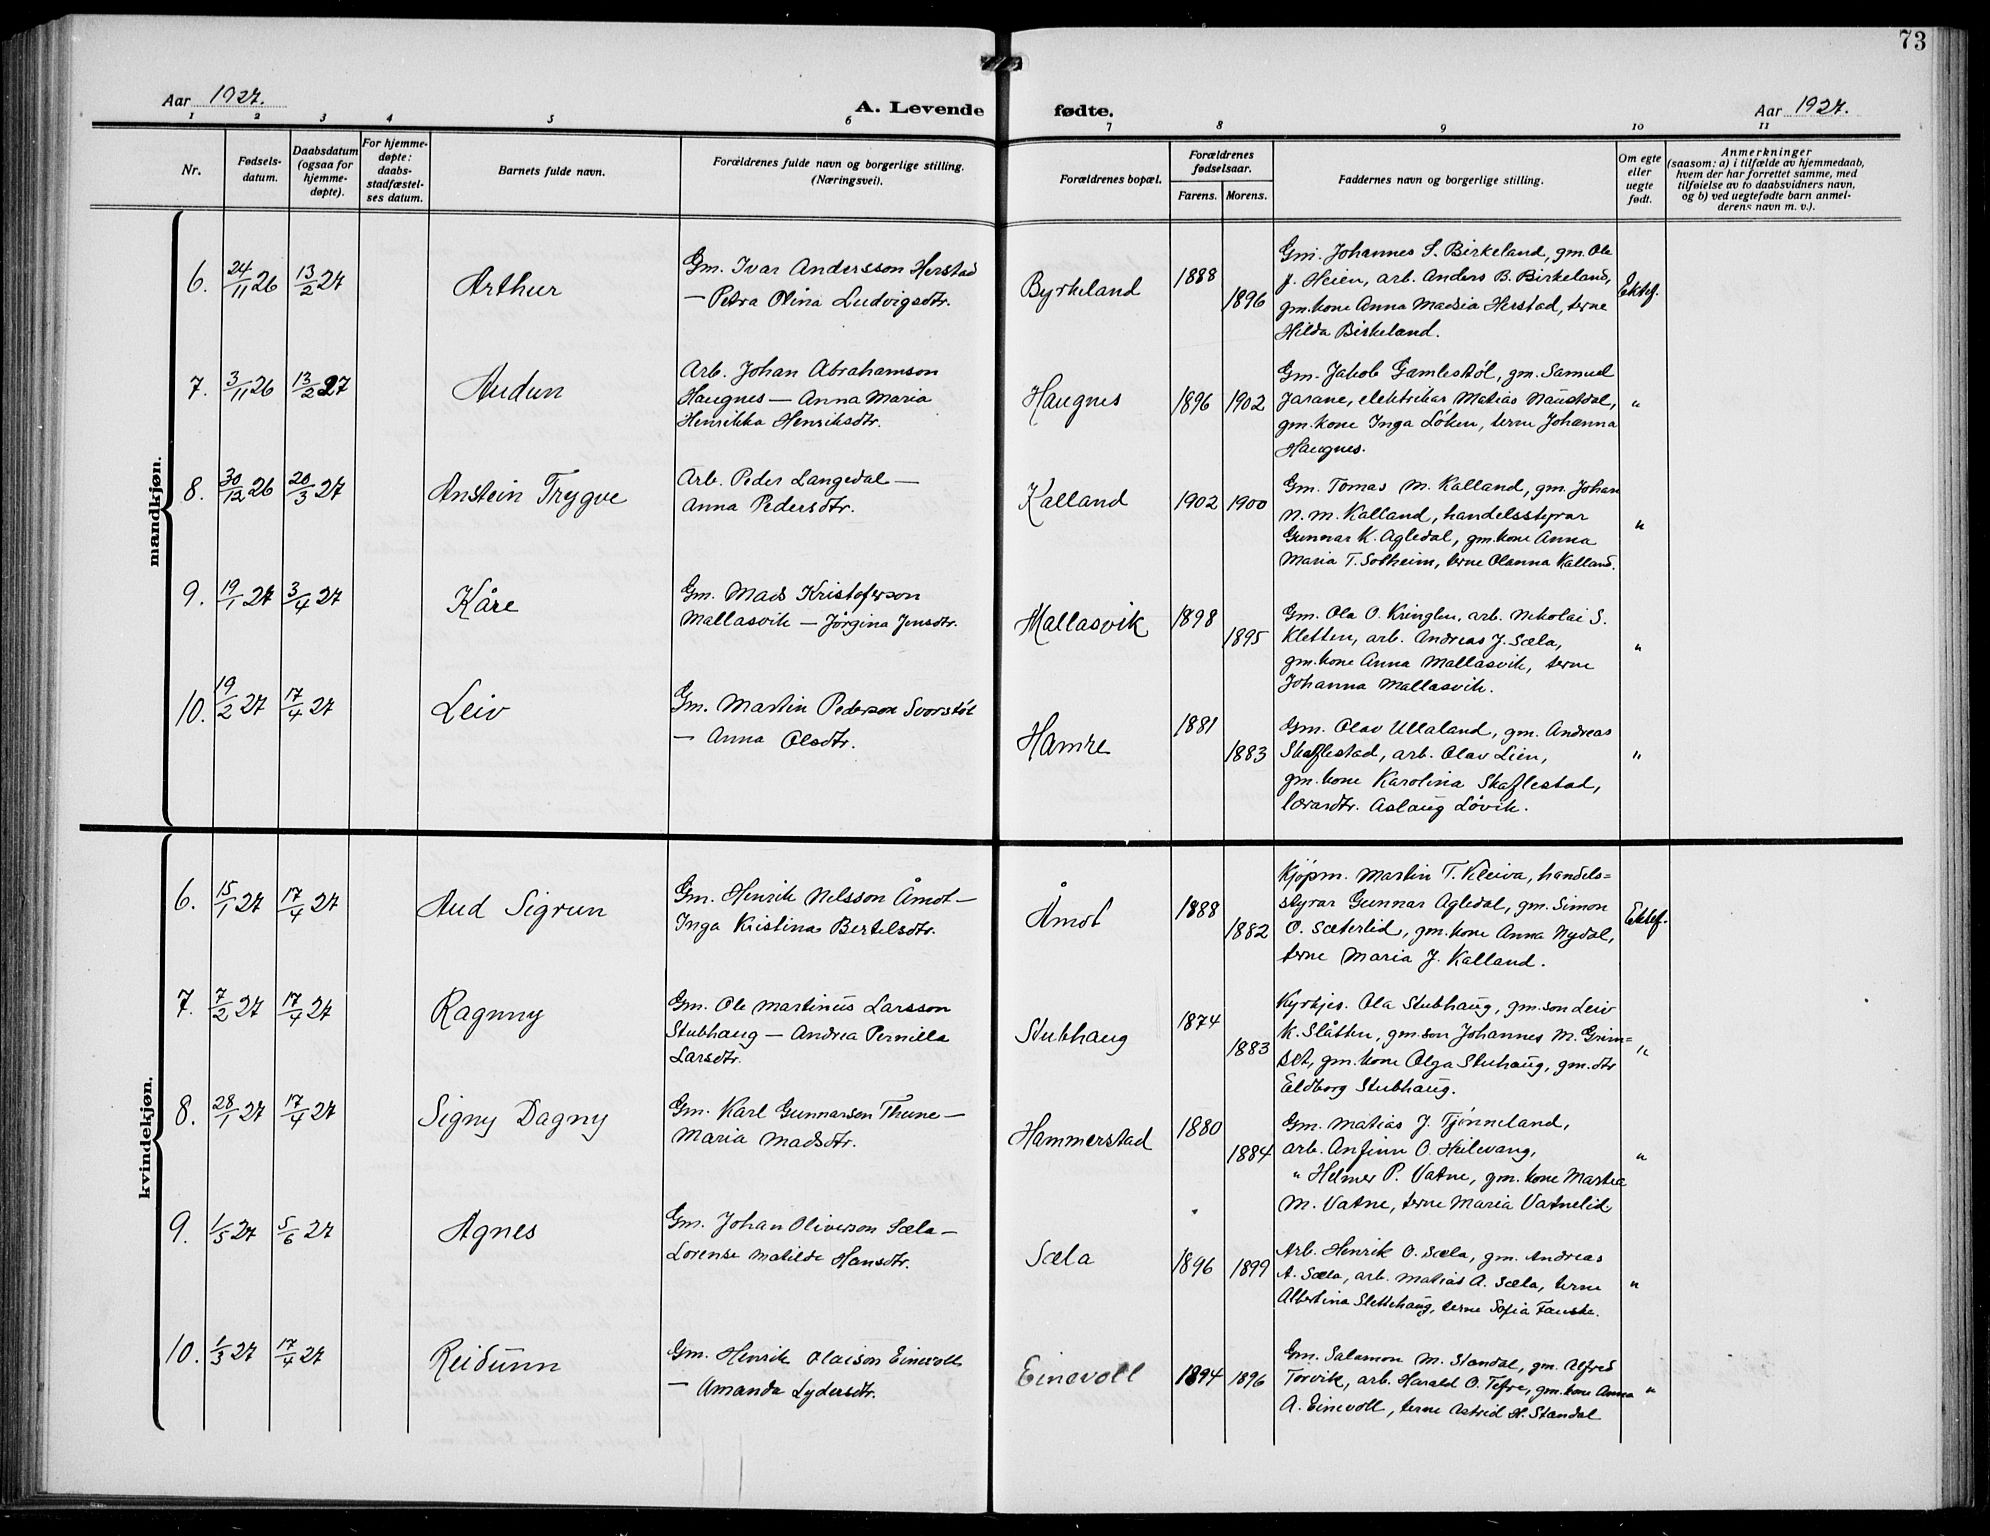 73
Aar 1927.
A. Levende fødte.
Aar 1927.
1 2 3 4 5 6 7 8 9 10 11
Nr.
Fødsels-
datum.
Daabsdatum
(ogsaa for
hjemme-
døpte).
For hjemme-
døpte:
daabs-
stadfæstel-
ses datum.
Barnets fulde navn.
Forældrenes fulde navn og borgerlige stilling.
(Næringsvei).
Forældrenes bopæl.
Forældrenes
fødselsaar.
Farens. Morens.
Faddernes navn og borgerlige stilling.
Om egte
eller
uegte
født.
Anmerkninger
(saasom: a) i tilfælde av hjemmedaab,
hvem der har forrettet samme, med
tilføielse av to daabsvidners navn,
og b) ved uegtefødte barn anmel-
derens navn m. v.).
mandkjøn.
6. 24/11 26 13/2 27 Arthur
Gm. Ivar Andersson Herstad
— Petra Olina Ludvigsdtr.
Byrkeland 1888 1896
Gm. Johannes S. Birkeland, gm. Ole
J. Heien, arb. Anders B. Birkeland,
gm. kone Anna Madsia Herstad, terne
Hilda Birkeland.
Ektef.
7. 3/11 26 13/2 27 Audun
Arb. Johan Abrahamson
Haugnes — Anna Maria
Henrikka Henriksdtr.
Haugnes 1896 1902
Gm. Jakob Gamlestøl, gm. Samuel
Jarane, elektrikar Matias Naustdal,
gm. kone Inga Løken, terne Johanna
Haugnes.
"
8. 30/12 26 20/3 27 Anstein Trygve
Arb. Peder Langedal —
Anna Pedersdtr.
Kalland 1902 1900
Gm. Tomas M. Kalland, gm. Johan
N. M. Kalland, handelsstyrar
Gunnar K. Agledal, gm. kone Anna
Maria T. Solheim, terne Olanna Kalland.
"
9. 19/1 27 3/4 27 Kåre
Gm. Mads Kristoferson
Mallasvik — Jørgina Jensdtr.
Mallasvik 1898 1895
Gm. Ola O. Kringlen, arb. Nikolai S.
Kletten, arb. Andreas J. Sæla,
gm. kone Anna Mallasvik, terne
Johanna Mallasvik.
"
10. 19/2 27 17/4 27 Leiv
Gm. Martin Pederson Svorstøl
— Anna Olsdtr.
Hamre 1881 1883
Gm. Olav Ullaland, gm. Andreas
Skaflestad, arb. Olav Lien,
gm. kone Karolina Skaflestad,
lærardtr. Aslaug Løvik.
"
kvindekjøn.
6. 15/1 27 17/4 27 Aud Sigrun
Gm. Henrik Nilsson Åmot —
Inga Kristina Bertelsdtr.
Åmot 1888 1882
Kjøpm. Martin T. Kleiva, handels=
styrar Gunnar Agledal, gm. Simon
O. Sæterlid, gm. kone Anna Nydal,
terne Maria J. Kalland.
Ektef.
7. 7/2 27 17/4 27 Ragnny
Gm. Ole Martinus Larsson
Stubhaug — Andrea Pernilla
Larsdtr.
Stubhaug 1874 1883
Kyrkjes. Ola Stubhaug, gm. son Leiv
K. Slåtten, gm. son Johannes M. Grim=
set, gm. kone Olga Stuhaug, gm. dtr
Eldborg Stubhaug.
"
8. 28/1 27 17/4 27 Signy Dagny
Gm. Karl Gunnarson Thune —
Maria Madsdtr.
Hammerstad 1880 1884
Gm. Matias J. Tjønneland,
arb. Anfinn O. Heilevang,
" Helmer P. Vatne, gm. kone Martea
M. Vatne, terne Maria Vatnelid.
"
9. 1/5 27 5/6 27 Agnes
Gm. Johan Oliverson Sæla —
Lorense Matilde Hansdtr.
Sæla 1896 1899
Arb. Henrik O. Sæla, gm. Andreas
A. Sæla, arb. Matias A. Sæla, terne
Albertina Slettehaug, terne Sofia Fauske.
"
10. 1/3 27 17/4 27 Reidunn
Gm. Henrik Olaison Einevoll
— Amanda Lydersdtr.
Einevoll 1894 1896
Gm. Salamon M. Standal, gm. Alfred
Torvik, arb. Harald O. Tefre, gm. kone Anna
A. Einevoll, terne Astrid H. Standal
"